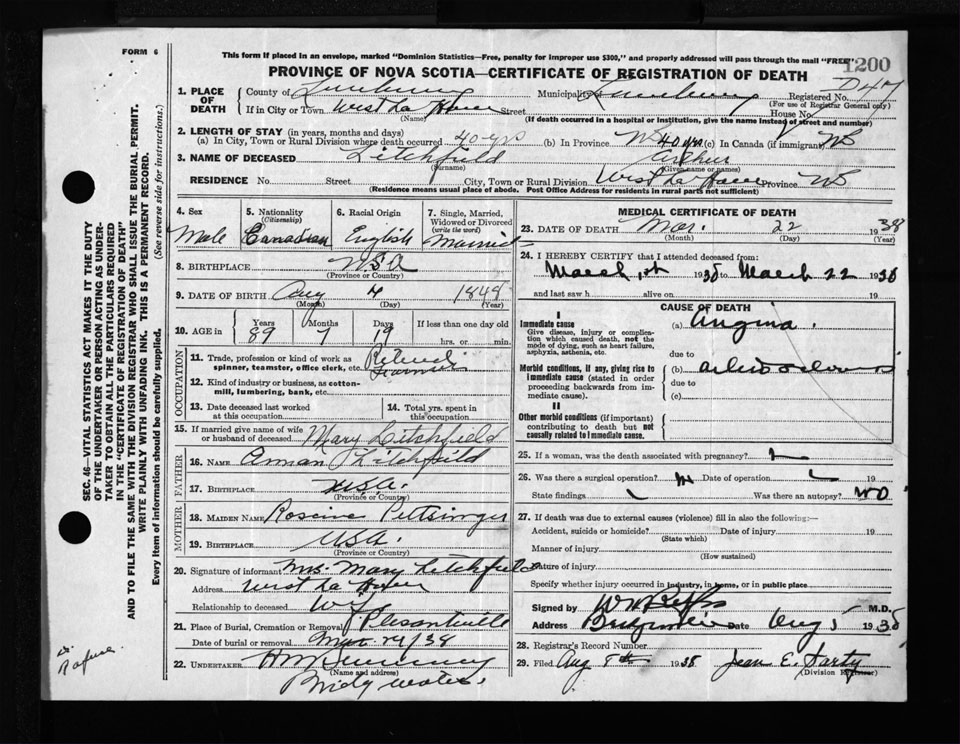 FORM 6
This form if placed in an envelope, marked "Dominion Statistics—Free, penalty for improper use $300," and properly addressed will pass through the mail "FREE"
1200
PROVINCE OF NOVA SCOTIA—CERTIFICATE OF REGISTRATION OF DEATH
1. PLACE OF DEATH County of Lunenburg Municipality Lunenburg Registered No.
(For use of Registrar General only)
If in City or Town West La Have Street House No.
(Name) (If death occurred in a hospital or Institution, give the name instead of street and number)
2. LENGTH OF STAY (in years, months and days)
(a) In City, Town or Rural Division where death occurred 40 yrs (b) In Province NS 40 yrs (c) In Canada (if immigrant) NS
3. NAME OF DECEASED Litchfield Arthur
(Surname) (Given name or names)
RESIDENCE No. Street City, Town or Rural Division West La Have Province NS
(Residence means usual place of abode. Post Office Address for residents in rural parts not sufficient)
4. Sex Male
5. Nationality (Citizenship) Canadian
6. Racial Origin English
7. Single, Married, Widowed or Divorced (write the word) Married
8. BIRTHPLACE USA
(Province or Country)
9. DATE OF BIRTH Aug 4 1848
(Month) (Day) (Year)
10. AGE in Years 89 Months 7 Days 19 If less than one day old hrs. or min.
OCCUPATION
11. Trade, profession or kind of work as spinner, teamster, office clerk, etc. Retired Farmer
12. Kind of industry or business, as cotton-mill, lumbering, bank, etc.
13. Date deceased last worked at this occupation
14. Total yrs. spent in this occupation
15. If married give name of wife or husband of deceased Mary Litchfield
FATHER
16. NAME Litchfield
17. BIRTHPLACE U.S.A.
(Province or Country)
MOTHER
18. MAIDEN NAME Pettsinger
19. BIRTHPLACE U.S.A.
(Province or Country)
20. Signature of informant Mrs. Mary Litchfield
Address West La Have
Relationship to deceased Wife
21. Place of Burial, Cremation or Removal Pleasantville
Date of burial or removal Mar 24/38
22. UNDERTAKER
(Name and address)
Bridgewater.
MEDICAL CERTIFICATE OF DEATH
23. DATE OF DEATH Mar. 22 1938
(Month) (Day) (Year)
24. I HEREBY CERTIFY that I attended deceased from:
March 1st 1938 to March 22 1938
and last saw h alive on 19
CAUSE OF DEATH
I
Immediate cause (a) Angina.
Give disease, injury or complication which caused death, not the mode of dying, such as heart failure, asphyxia, asthenia, etc.
due to
Morbid conditions, if any, giving rise to immediate cause (stated in order proceeding backwards from immediate cause). (b)
due to
(c)
II
Other morbid conditions (if important) contributing to death but not causally related to immediate cause.
25. If a woman, was the death associated with pregnancy?
26. Was there a surgical operation? Date of operation 19
State findings Was there an autopsy? NO
27. If death was due to external causes (violence) fill in also the following:—
Accident, suicide or homicide? Date of injury 19
(State which)
Manner of injury
(How sustained)
Nature of injury
Specify whether injury occurred in industry, in home, or in public place
Signed by M.D.
Address Bridgewater Date Aug 5 1938
28. Registrar's Record Number
29. Filed Aug 8th 1938 Jean E. Darty
(Division Registrar)
SEC. 46—VITAL STATISTICS ACT MAKES IT THE DUTY
OF THE UNDERTAKER OR PERSON ACTING AS UNDER-
TAKER TO OBTAIN ALL THE PARTICULARS REQUIRED
IN THE "CERTIFICATE OF REGISTRATION OF DEATH"
AND TO FILE THE SAME WITH THE DIVISION REGISTRAR WHO SHALL ISSUE THE BURIAL PERMIT.
WRITE PLAINLY WITH UNFADING INK. THIS IS A PERMANENT RECORD.
Every item of information should be carefully supplied. (See reverse side for instructions.)